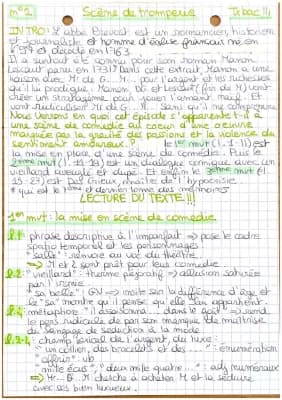 n°1 Scène de tromperie Tu bac !!
INTRO : L'abbé Prévost est un romancier, historien
et journaliste et homme d'église français né en
1697 et décédé en 1763.
Il a surtout été connu pour son roman Manon
Lescaut paru en 1731. Dans cette extrait, Manon a une
liaison avec Mr de G... M... pour l'argent et les richesses
qu'il lui prodigue. Manon, DG et Lescaut (fin de M) vont
créer un stratagème pour jouer l'amant naïf. Et
vont ridiculiser Mr de G... M... sans qu'il ne comprenne.
Nous verrons en quoi cet épisode s'apparente-t-il à
une scène de comédie au coeur d'une œuvre
marquée par la gravité des passions et la violence de
sentiment amoureux ? le 1er mvt (l.1-11) est
la mise en place d'une scène de comédie. Puis le
2ème mvt (l. ) est un dialogue comique avec un
vieillard aveugle et dupé. Et enfin le 3ème mvt (l.
19-27) est Des Grieux, maître de l'hypocrisie
* qui est le ème et dernier tome des mémoires
LECTURE DU TEXTE !!
1er mvt : la mise en scène de comédie
l.1 phrase descriptive à l'imparfait => pose le cadre
spatio temporel et les personnages.
"salle" : renvoie au vol du théâtre
=> M et L sont prêt pour leur comédie
l.2 "vieillard" : thème péjoratif => allusion
par l'ironie
"sa belle" : GN => mite sur la différence d'âge et
le "sa" montre qu'il pense qu'elle lui appartient.
l. métaphore "il assaisonna... dans le goût" => rend
le pers ridicule de par son manque de maîtrise
du langage de séduction à la mode
l. champ lexical de l'argent, du luxe :
"un collier, des bracelets et des ..." : énumération
"offrir" vb
"mille écus", "deux mille quatre..." : adj numéraux
=> Mr G... M cherche à acheter M et la séduire
avec des bien luxueux.